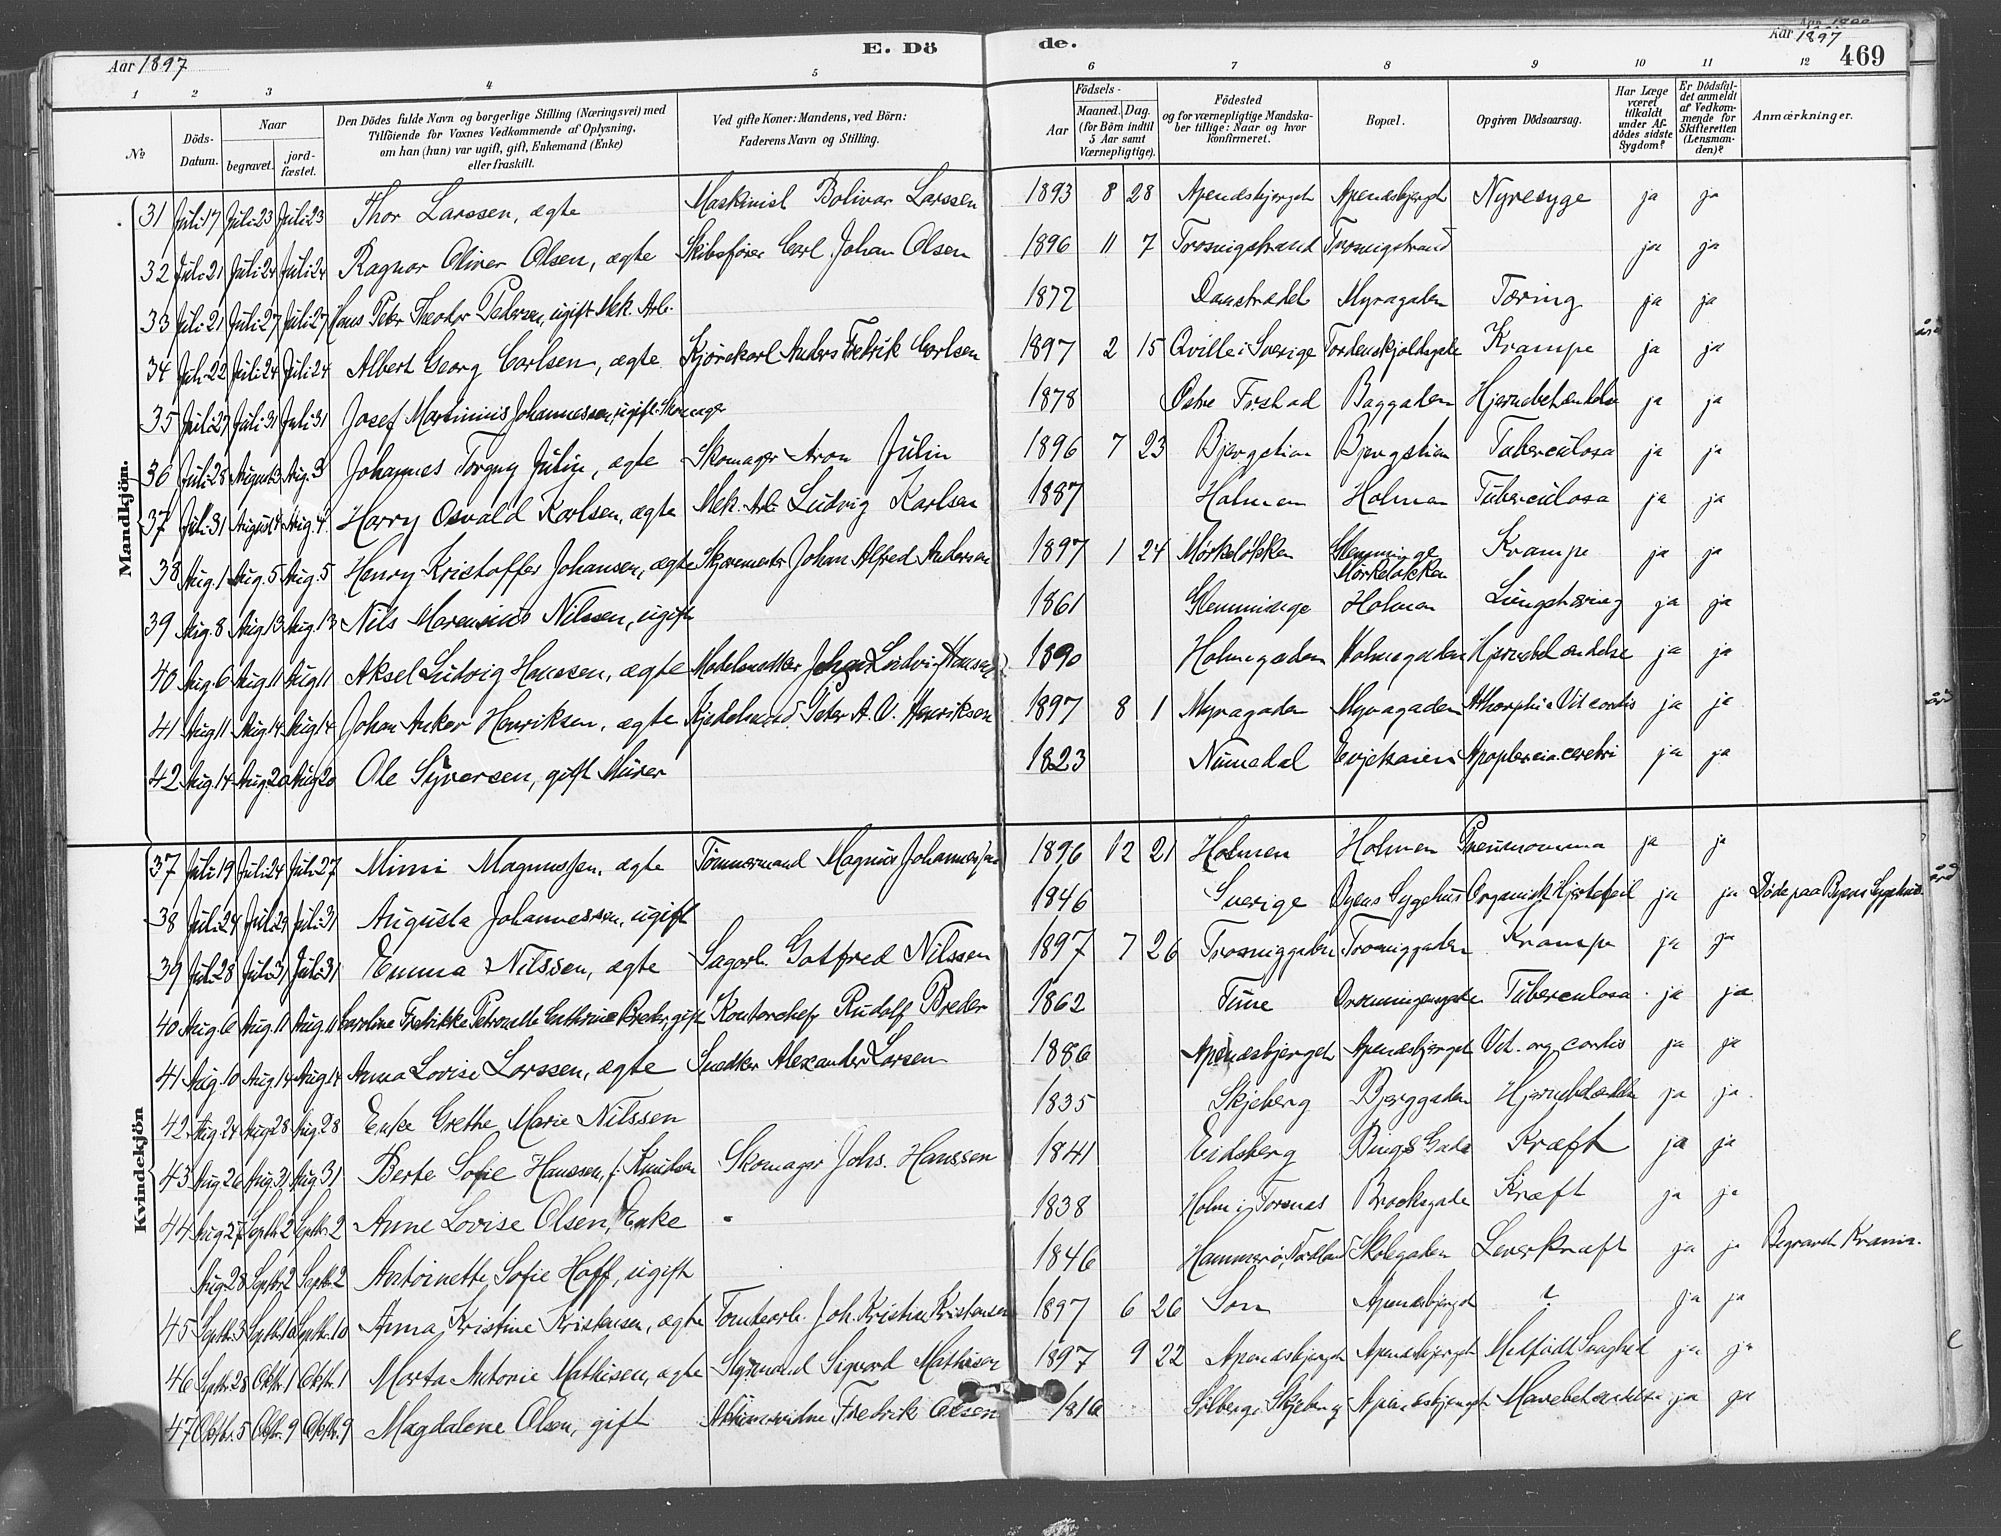 E. Döde.
Aar 1897
Aar 1897
469
1 2 3 4 5 6 7 8 9 10 11 12
No
Döds-Datum.
Naar
begravet.
jordfæstet.
Den Dödes fulde Navn og borgerlige Stilling (Næringsvei) med Tilföiende for Voxnes Vedkommende af Oplysning, om han (hun) var ugift, gift, Enkemand (Enke) eller fraskilt.
Ved gifte Koner: Mandens, ved Börn: Faderens Navn og Stilling.
Födsels-
Aar
Maaned. Dag.
(for Börn indtil 5 Aar samt Værnepligtige).
Födested og for værnepligtige Mandskaber tillige: Naar og hvor konfirmeret.
Bopæl.
Opgiven Dödsaarsag.
Har Læge været tilkaldt under Afdödes sidste Sygdom?
Er Dödsfaldet anmeldt af Vedkommende for Skifteretten (Lensmanden)?
Anmærkninger.
Mandkjön.
31 Juli 17 Juli 23 Juli 23 Thor Larssen, ægte Maskinist Bolivar Larssen 1893 8 28 Apenæsbjerget Apenæsbjerget Nyresyge ja ja
32 Juli 21 Juli 24 Juli 24 Ragnar Oliver Olsen, ægte Skibsfører Carl Johan Olsen 1896 11 7 Trosvigstrand Trosvigstrand ja ja
33 Juli 21 Juli 27 Juli 27 Hans Peter Theodor Pedersen, ugift Mek. Arb. 1877 Damstrædet Myragaden Tæring ja ja
34 Juli 22 Juli 24 Juli 24 Albert Georg Carlsen, ægte Kjørekarl Anders Fredrik Carlsen 1897 2 15 Qville i Sverige Tordenskjoldsgade Krampe ja ja
35 Juli 27 Juli 31 Juli 31 Josef Martinius Johannessen, ugift Skomager 1878 Østre Forstad Baggaden Hjernebetændelse ja ja
36 Juli 28 August 3 Aug. 3 Johannes Torgny Julin, ægte Skomager Aron Julin 1896 7 23 Bjergstien Bjergstien Tuberculosa ja ja
37 Juli 31 August 4 Aug. 4 Harry Osvald Karlsen, ægte Mek. Arb. Ludvig Karlsen 1887 Holmen Holmen Tuberculosa ja ja
38 Aug. 1 Aug. 5 Aug. 5 Henry Kristoffer Johansen, ægte Johan Alfred Andersen 1897 1 24 Mørkeløkken Glemminge Mørkeløkken Krampe ja ja
39 Aug. 8 Aug 13 Aug. 13 Nils Marensius Nilssen, ugift 1861 Glemminge Holmen Lungetæring ja ja
40 Aug. 6 Aug 11 Aug 11 Aksel Ludvig Hanssen, ægte Modelsnedker Johan Ludvig Hanssen 1890 Holmegaden Holmegaden Hjernebetændelse ja ja
41 Aug 11 Aug 14 Aug 14 Johan Anker Henriksen, ægte Kjedelsmed Peter A. O. Henriksen 1897 8 1 Myragaden Myragaden Athrophia Vit cordis ja ja
42 Aug. 14 Aug. 20 Aug 20 Ole Syversen, gift Murer 1823 Numedal Evjekaien Apoplexia cerebri ja ja
Kvindekjön
37 Juli 19 Juli 24 Juli 27 Mimi Magnussen, ægte Tømmermand Magnus Johannessen 1896 12 21 Holmen Holmen Pneumomma ja ja
38 Juli 24 Juli 29 Juli 31 Augusta Johannessen, ugift 1846 Sverige Byens Sygehus Organisk Hjertefeil ja ja Døde paa Byens Sygehus.
39 Juli 28 Juli 31 Juli 31 Emma Nilssen, ægte Sagarb. Gotfred Nilssen 1897 7 26 Trosviggaden Trosviggaden Krampe ja ja
40 Aug 6 Aug. 11 Aug. 11 Caroline Fredrikke Petronelle Cathrine Breder, gift Kontorchef Rudolf Breder 1862 Tune Dronningensgade Tuberculosa ja ja
41 Aug. 10 Aug. 14 Aug. 14 Anna Lovise Larssen, ægte Snedker Alexander Larsen 1886 Apenæsbjerget Apenæsbjerget Vit. org. cordis ja ja
42 Aug. 24 Aug 28 Aug. 28 Enke Grethe Marie Nilssen 1835 Skjeberg Bjerggaden ja ja
43 Aug 26 Aug. 31 Aug. 31 Berte Sofie Hanssen, f. Knudsen Skomager Johs. Hanssen 1841 Eidsberg Bings Gade Kræft ja ja
44 Aug 27 Septb. 2 Septb. 2 Anne Lovise Olsen, Enke 1838 Holm i Torsnæs Brochsgade Kræft ja ja
Aug. 28 Septb. 2 Septb. 2 Antoinette Sofie Hoff, ugift 1846 Hammerø, Nordland Skolegaden Leverkræft ja ja Begravet Krania.
45 Septb. 3 Septb. 10 Septb. 10 Anna Kristine Kristensen, ægte Tomtearb. Joh. Kristian Kristensen 1897 6 26 Son Apenæsbjerget ? ja ja
46 Septb. 28 Oktb. 1 Oktb. 1 Marta Antonie Mathisen, ægte Styrmand Sigvard Mathisen 1897 9 22 Apenæsbjerget Apenæsbjerget Medfødt Svaghed ja ja
47 Oktbr. 5 Oktb. 9 Oktb. 9 Magdalene Olsen, gift Fredrik Olsen Solberg i Skjeberg Apenæsbjerget Mavebetændelse ja ja